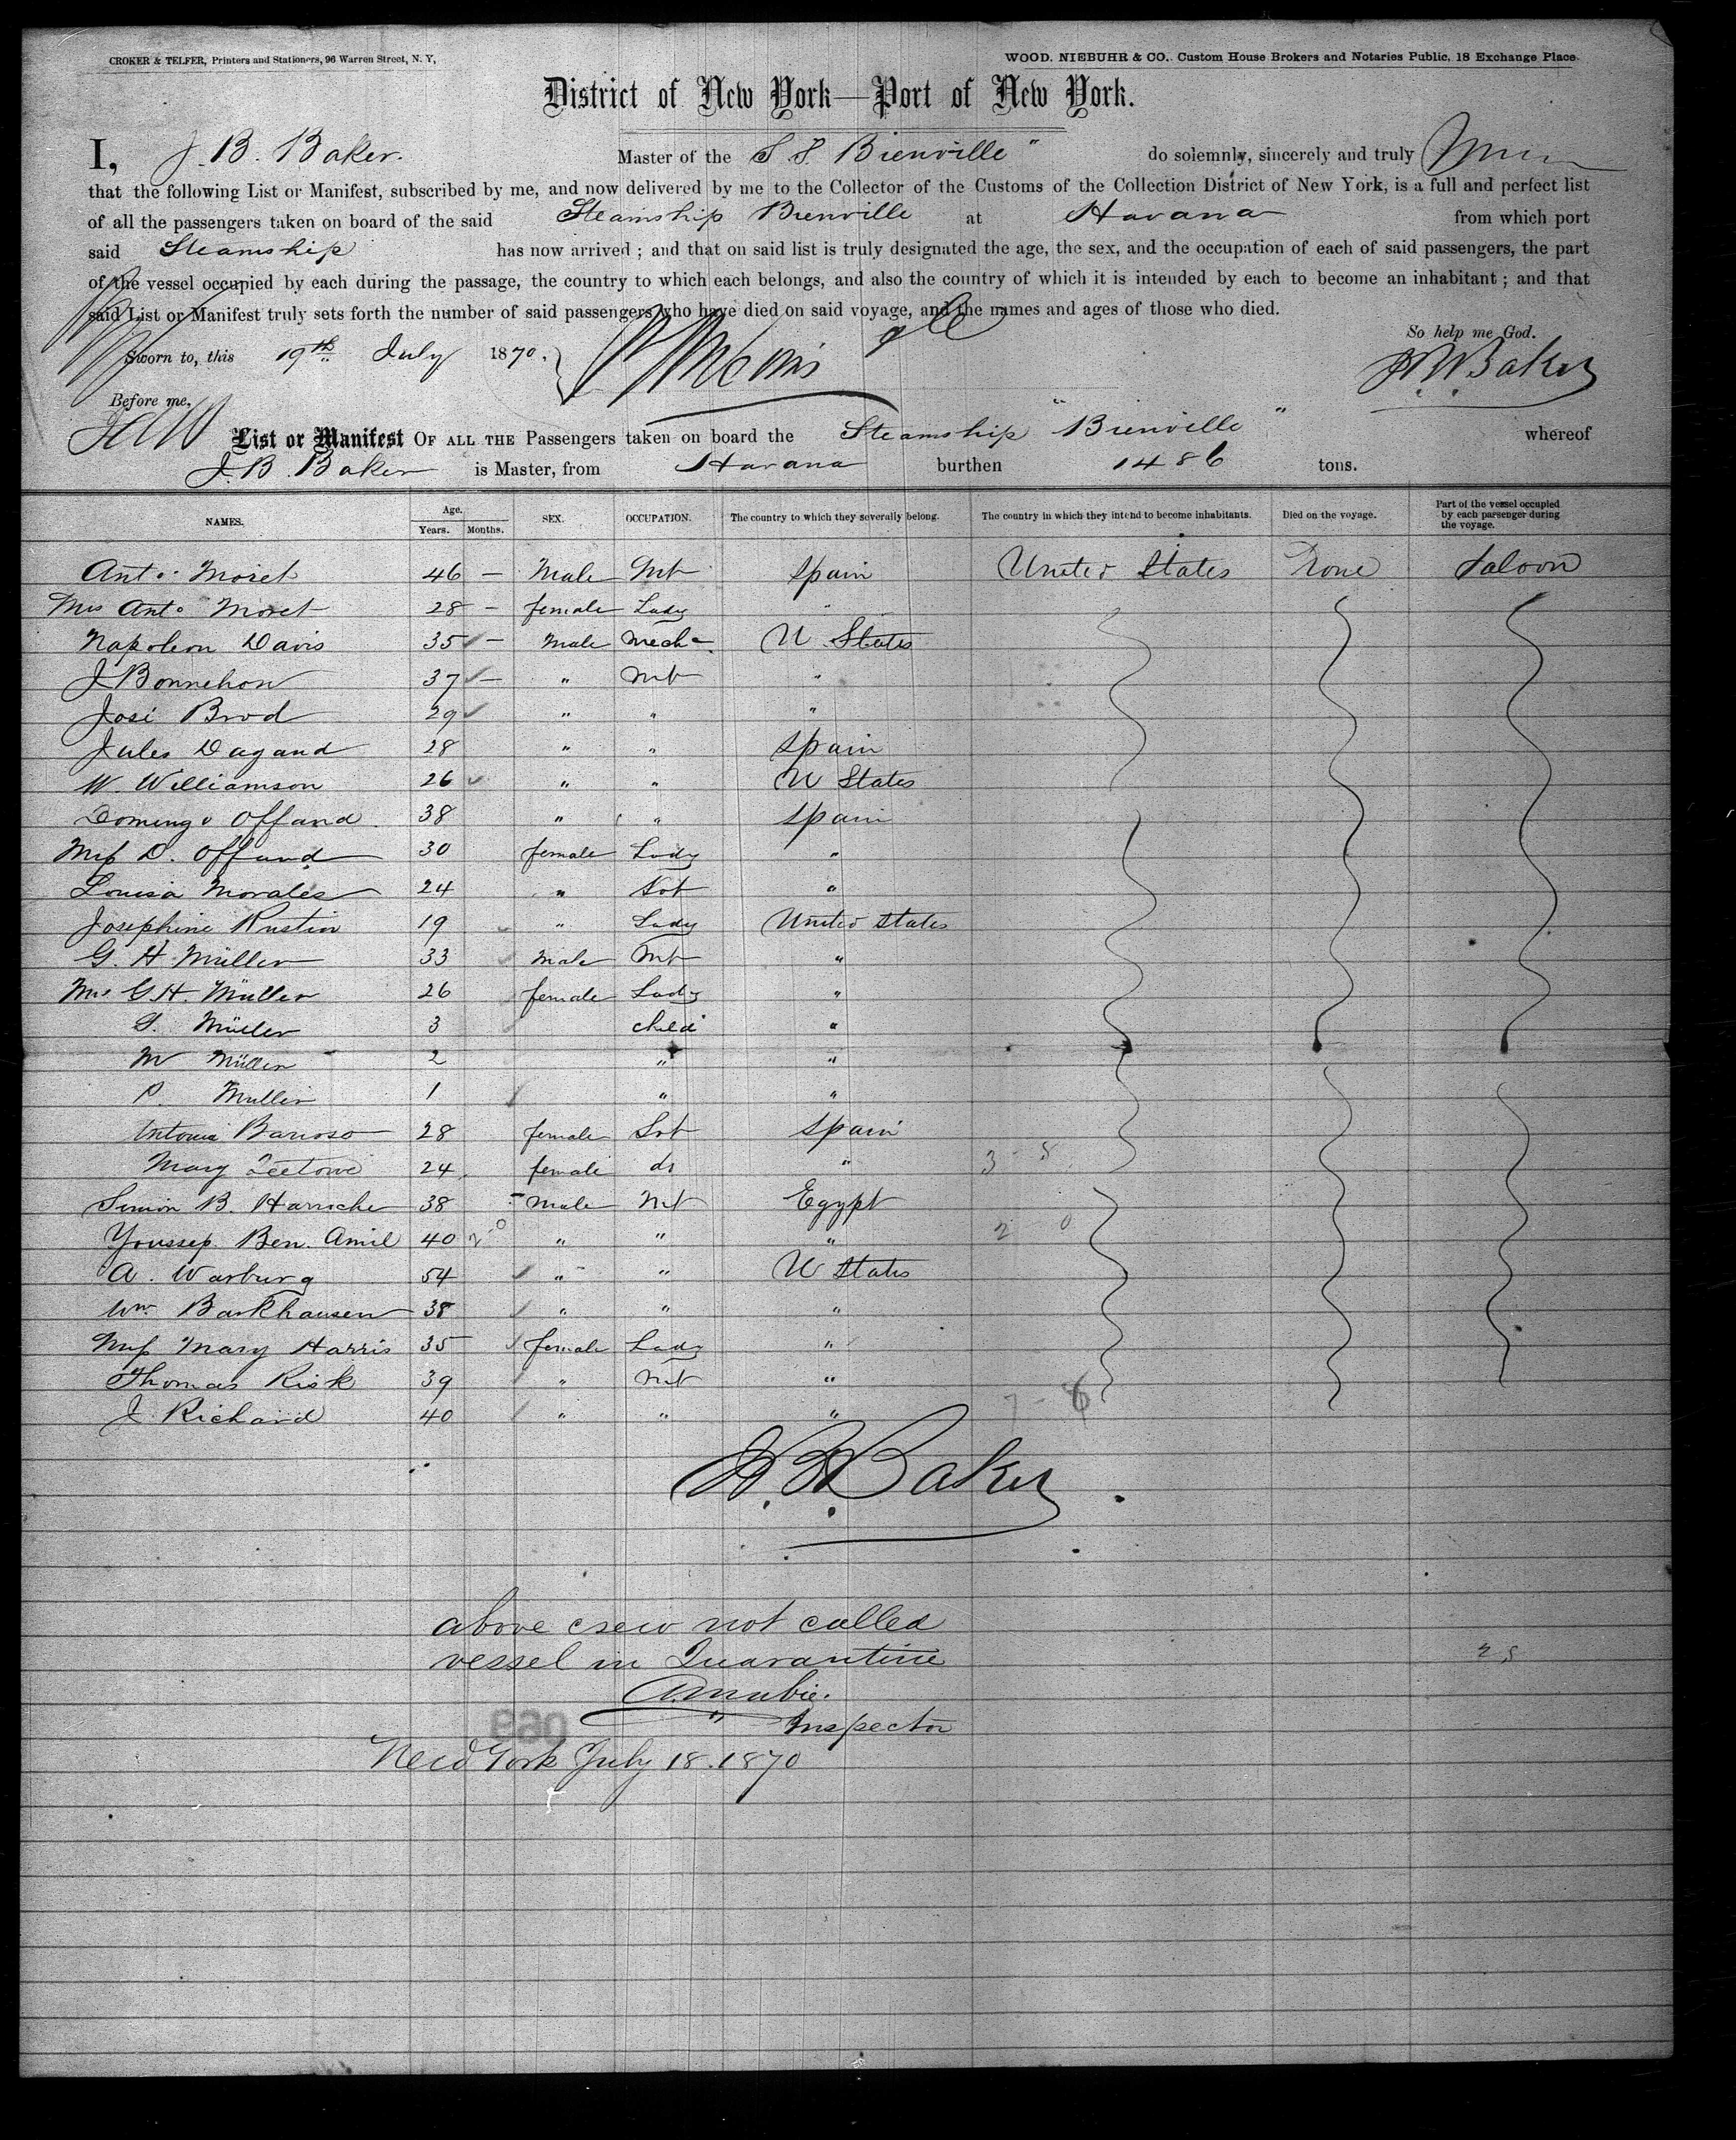 CROKER & TELFER, Printers and Stationers, 96 Warren Street, N. Y,
WOOD. NIEBUHR & CO., Custom House Brokers and Notaries Public, 18 Exchange Place.
District of New York—Port of New York.
I, J. B. Baker. Master of the S. S. Bienville" do solemnly, sincerely and truly
that the following List or Manifest, subscribed by me, and now delivered by me to the Collector of the Customs of the Collection District of New York, is a full and perfect list
of all the passengers taken on board of the said Steamship Bienville at Havana from which port
said Steamship has now arrived ; and that on said list is truly designated the age, the sex, and the occupation of each of said passengers, the part
of the vessel occupied by each during the passage, the country to which each belongs, and also the country of which it is intended by each to become an inhabitant ; and that
said List or Manifest truly sets forth the number of said passengers who have died on said voyage, and the names and ages of those who died.
So help me God.
Sworn to, this 19th July 1870. J. B. Baker
Before me,
List or Manifest OF ALL THE Passengers taken on board the Steamship "Bienville" whereof
J. B. Baker is Master, from Havana burthen 1486 tons.
NAMES. Age. Years. Months. SEX. OCCUPATION. The country to which they severally belong. The country in which they intend to become inhabitants. Died on the voyage. Part of the vessel occupied by each passenger during the voyage.
Anto. Moret 46 — Male Mt Spain United States None Saloon
Mrs Anto Moret 28 — female Lady "
Napoleon Davis 35 — Male Mech U States
J Bonnehon 37 — " Mt "
José Brod 29 " " "
Jules Dagand 28 " " Spain
W. Williamson 26 " " U States
Domingo Offand 38 " " Spain
Mrs D. Offand 30 female Lady "
Louisa Morales 24 " Svt "
Josephine Rustin 19 " Lady United States
G. H. Müller 33 Male Mt "
Mrs G. H. Müller 26 female Lady "
Müller 3 child "
M Müller 2 " "
P. Muller 1 " "
Antonia Barroso 28 female Svt Spain
Mary 24 female do "
Simon B. Harroche 38 Male Mt Egypt
Youssep. Ben. Amil 40 " " "
A. Warburg 54 " " U States
Wm. Barkhausen 38 " " "
Mrs Mary Harris 35 female Lady "
Thomas Risk 39 " Mt "
J. Richard 40 " " "
J. B. Baker
above crew not called
vessel in Quarantine
Inspector
New York July 18. 1870